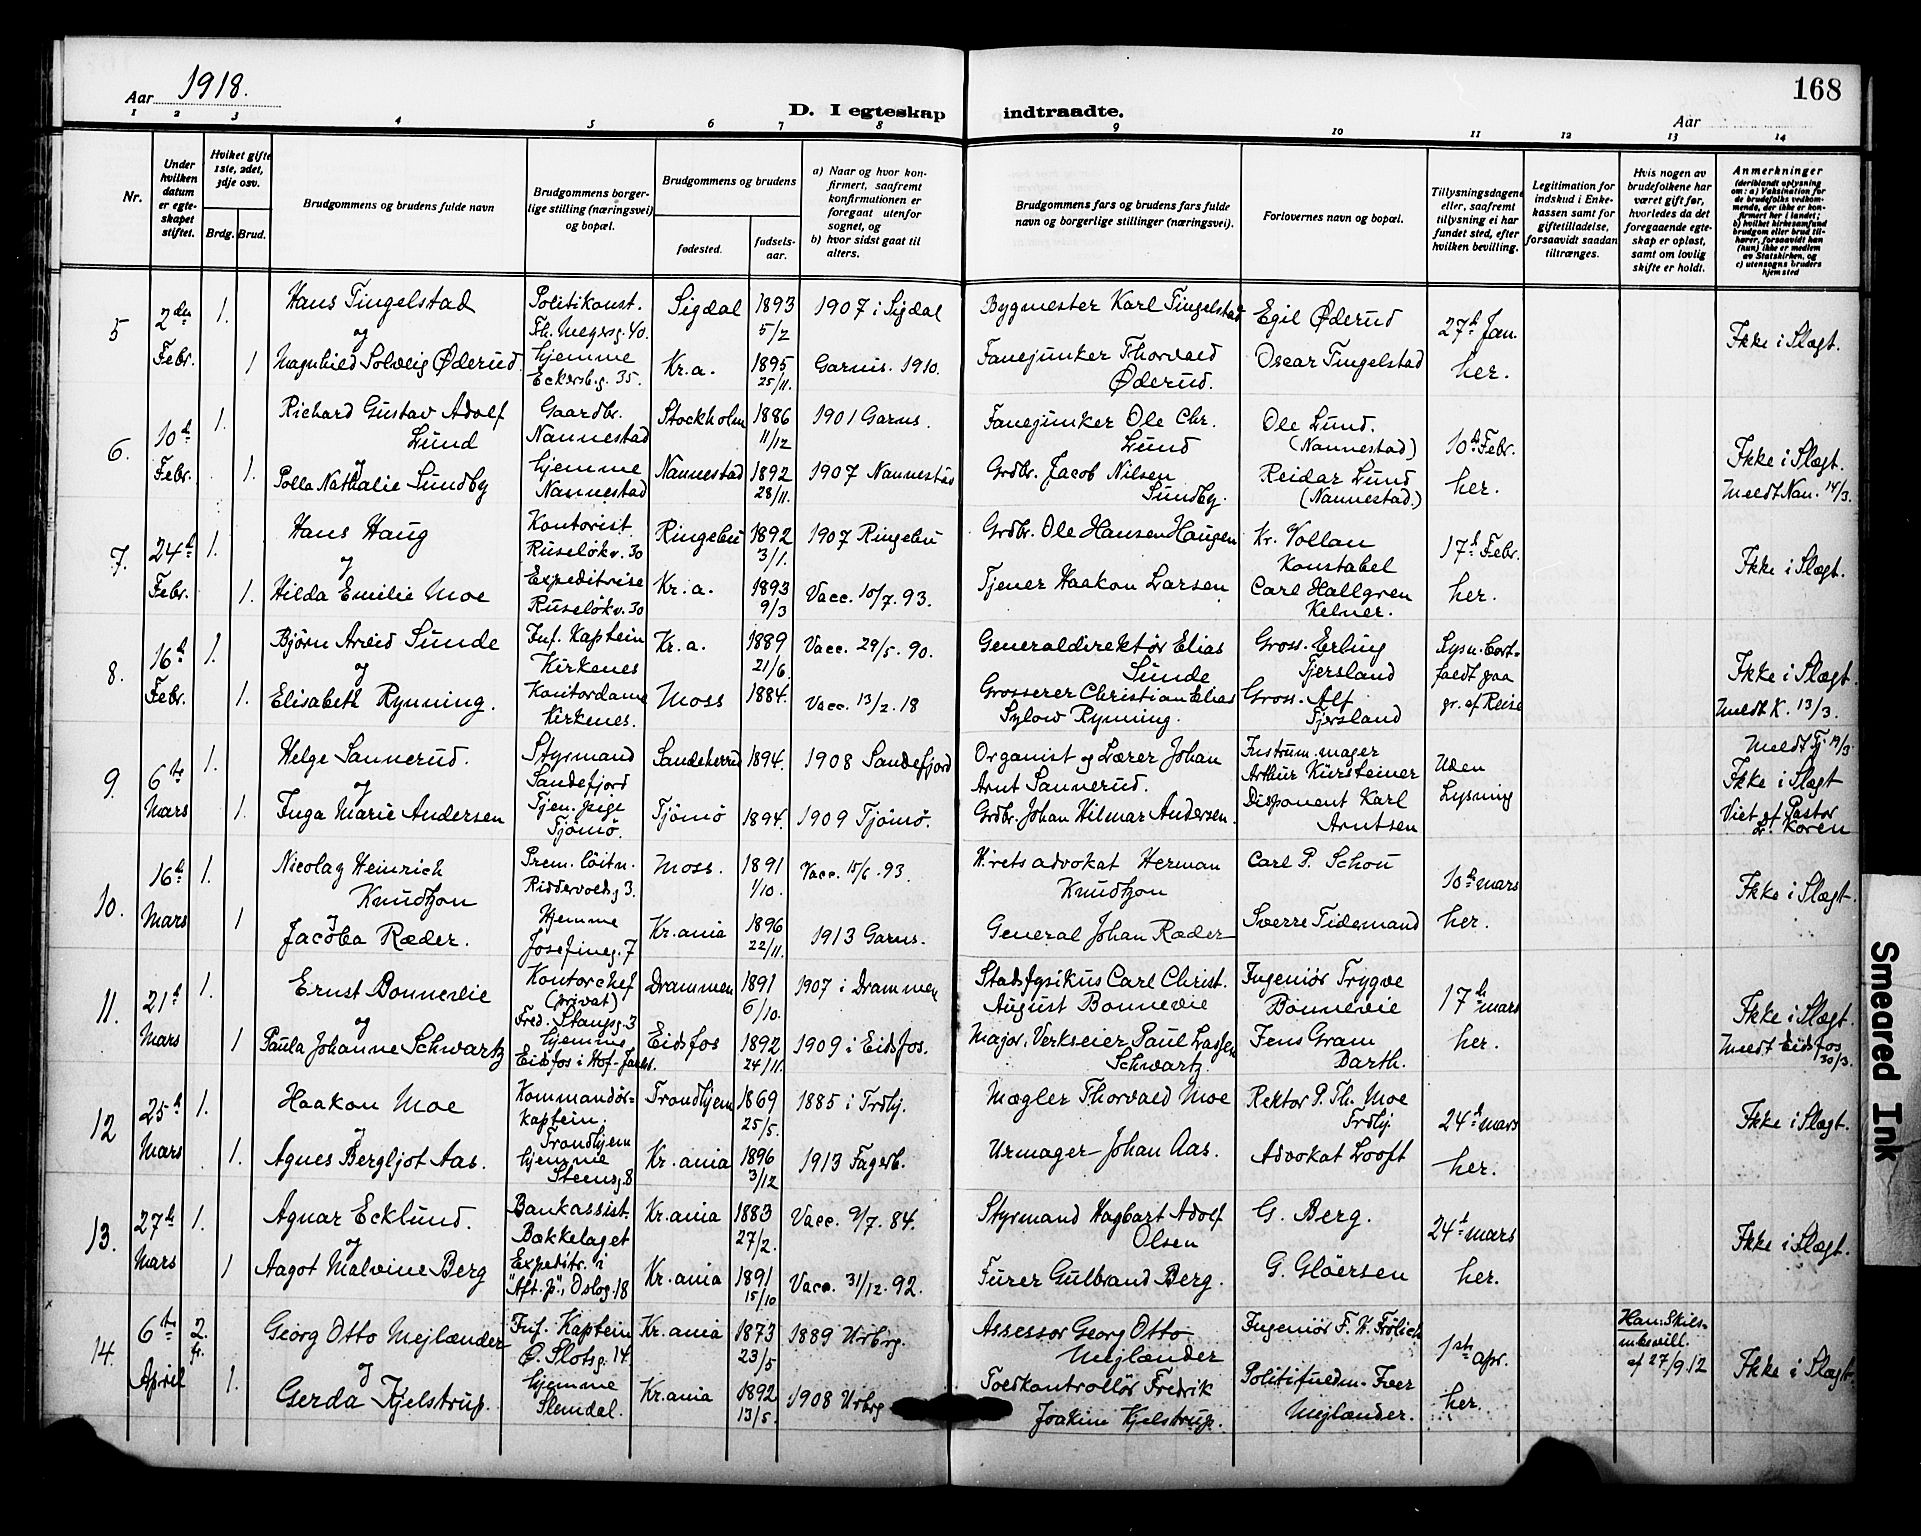 168
Aar 1918.
D. I egteskap indtraadte.
Aar
1 2 3 4 5 6 7 8 9 10 11 12 13 14
Nr.
Under hvilken datum er egteskapet stiftet.
Hvilket gifte 1ste, 2det, 3dje osv.
Brdg. Brud.
Brudgommens og brudens fulde navn
Brudgommens borgerlige stilling (næringsvei) og bopæl.
Brudgommens og brudens
fødested. fødselsaar.
a) Naar og hvor konfirmert, saafremt konfirmationen er foregaat utenfor sognet, og
b) hvor sidst gaat til alters.
Brudgommens fars og brudens fars fulde navn og borgerlige stillinger (næringsvei).
Forlovernes navn og bopæl.
Tillysningsdagene eller, saafremt tillysning ei har fundet sted, efter hvilken bevilling.
Legitimation for indskud i Enkekassen samt for giftetilladelse, forsaavidt saadan tiltrænges.
Hvis nogen av brudefolkene har været gift før, hvorledes da det foregaaende egteskap er opløst, samt om lovlig skifte er holdt.
Anmerkninger
(deriblandt oplysning om: a) Vaksination for de brudefolks vedkommende, der ikke er konfirmert her i landet; b) hvilket kirkesamfund brudgom eller brud tilhører, forsaavidt han (hun) ikke er medlem av Statskirken, og c) utensogns bruders hjemsted
5 2den Febr. 1. Hans Tingelstad Politikonst. Th. Meyersg. 40. Sigdal 1893 5/2 1907 i Sigdal Bygmester Karl Tingelstad Egil Øderud 27d Jan. Ikke i Slægt.
og
1 Magnhild Solveig Øderud. hjemme Eckersbg. 35. Kr.a. 1895 25/11. Garnis. 1910. Fanejunker Thorvald Øderud. Oscar Tingelstad her.
6 10d Febr. 1. Richard Gustav Adolf Lund Gaardbr. Nannestad Stockholm 1886 11/12 1901 Garns. Fanejunker Ole Chr. Lund Ole Lund. (Nannestad) 10d Febr. Ikke i Slægt.
og
1. Polla Nathalie Sundby hjemme Nannestad Nannestad 1892 28/11. 1907 Nannestad Grdbr. Jacob Nilsen Sundby. Reidar Lund (Nannestad.) her. Meldt Nan. 14/3.
7. 24d Febr. 1. Hans Haug Kontorist Ruseløkv. 30 Ringebu 1892 3/1. 1907 Ringebu Grdbr. Ole Hansen Haugen Kr. Vollan Konstabel 17d Febr. Ikke i Slægt.
og
1. Hilda Emilie Moe Expeditrise Ruseløkv. 30 Kr.a. 1893 9/3 Vacc. 10/7. 93. Tjener Haakon Larsen Carl Hallgren Kelner. her.
8. 16d Febr. 1. Bjørn Arvid Sunde Inf. Kaptein Kirkenes Kr.a. 1889 21/6. Vacc. 29/5. 90. Generaldirektør Elias Sunde Gross. Erling Fjersland Lysn. bortfaldt paa gr. af Reise Ikke i Slægt.
og
1. Elisabeth Rynning. Kontordame Kirkenes. Moss 1884. Vacc. 13/2. 18 Grosserer Christian Elias Sylow Rynning. Gross. Alf Fjersland Meldt K. 13/3.
9. 6te Mars 1. Helge Sannerud. Styrmand Sandefjord Sandeherred 1894. 1908 Sandefjord Organist og Lærer Johan Arnt Sannerud. Instrum. mager Arthur Kürsteiner Uden Lysning Meldt Tj. 19/3 Ikke i Slægt
og
1. Inga Marie Andersen Tjen. pige Tjømø. Tjømø 1894. 1909 Tjømø. Grdbr. Johan Hilmar Andersen. Disponent Karl Arntsen Viet af Pastor L. Koren
10. 16d Mars 1. Nicolay Heinrich Knudtzon Prem. løitn. Riddervoldsg 3. Moss. 1891 1/10. Vacc. 15/6. 93. H.rets advokat Herman Knudtzon Carl P. Schou 10d mars Ikke i Slægt.
og
1 Jacoba Ræder. Hjemme Josefineg. 7 Kr.ania 1896 22/11. 1913 Garns. General Johan Ræder Sverre Tidemand her.
11. 21d Mars 1. Ernst Bonnevie Kontorchef (privat) Fred. Stangsg. 3 Drammen 1891 6/10. 1907 i Drammen Stadsfysikus Carl Christ. August Bonnevie Ingeniør Trygve Bonnevie 17d mars Ikke i Slægt.
og
1 Paula Johanne Schwartz hjemme Eidsfos i Hof-Jarls. Eidsfos 1892 24/11. 1909 i Eidsfos. Major, Verkseier Paul Lassen Schwartz. Jens Gram Barth. her. Meldt Eidsfos 30/3.
12 25d Mars 1. Haakon Moe Kommandørkaptein. Trondhjem Trondhjem 1869 25/5. 1885 i Trdhj. Mægler Thorvald Moe Rektor P. Th. Moe Trdhj. 24d mars Ikke i Slægt.
og
1. Agnes Bergljot Aas. hjemme Steensg 8 Kr.ania 1896 3/12 1913 Fagerb. Urmager Johan Aas. Advokat Looft her.
13. 27d Mars 1. Agnar Ecklund. Bankassist. Bækkelaget Kr.ania 1883 27/2. Vacc. 9/7. 84. Styrmand Hagbart Adolf Olsen G. Berg. 24d mars Ikke i Slægt.
og
1 Aagot Malvine Berg Expeditr. i "Aft. p", Oslog. 18 Kr.ania 1891 15/10 Vacc. 31/12. 92. Furer Gulbrand Berg. G. Gløersen her.
14. 6te April 2. fr. Georg Otto Mejlænder Inf. Kaptein Ø. Slotsg. 14. Kr.ania 1873 23/5 1889 Urbrg. Assessor Georg Otto Mejlænder Ingeniør F. H. Frölich 1ste apr. Han: Skilsmbsvill. af 27/9.12 Ikke i Slægt.
og
1. Gerda Kjelstrup. hjemme Slemdal. Kr.ania 1892 13/5. 1908 Urbrg Toldkontrollør Fredrik Joakim Kjelstrup. Politifuldm. Iver Mejlænder. her.
Smeared Ink